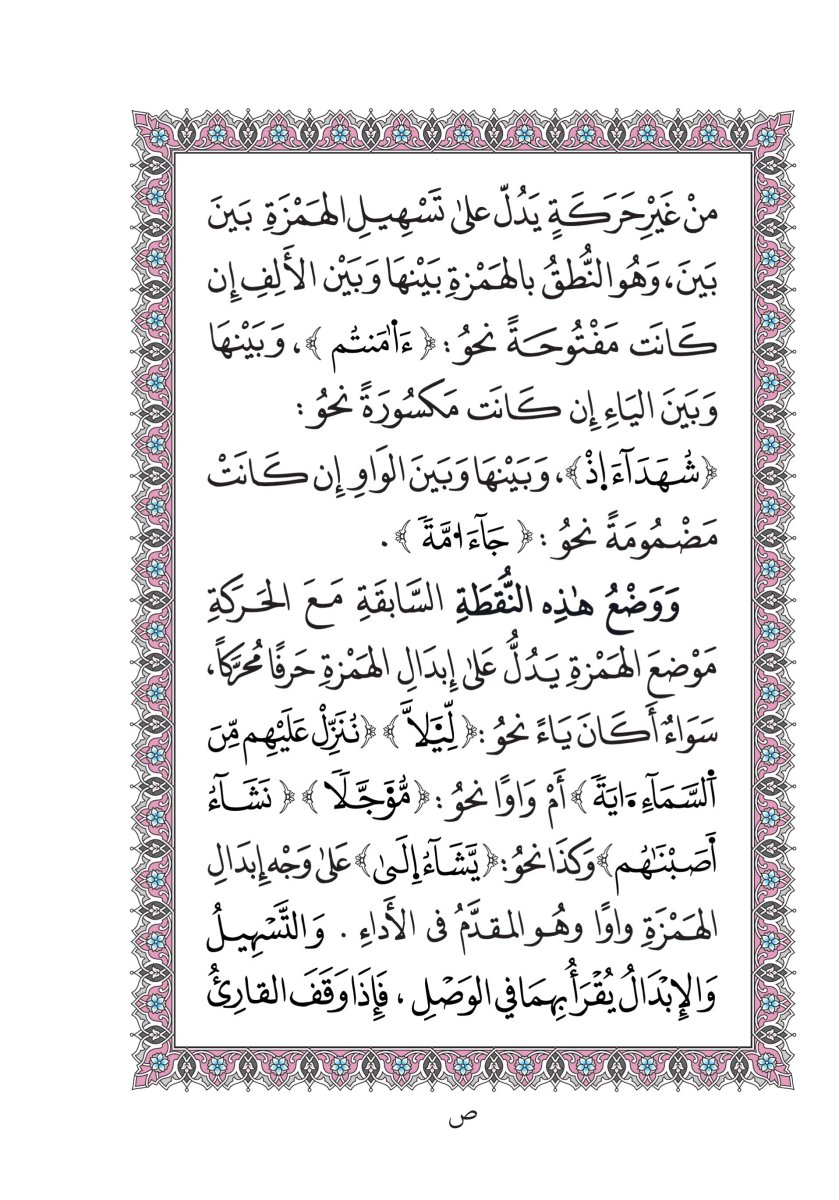 منْ غَيْرِ حَرَكَةٍ يَدُلّ علىٰ تَسْهِيلِ الهَمْزَةِ بَينَ
بَينَ، وَهُو النُّطقُ بالهَمْزةِ بَيْنهَا وَبَيْن الأَلِفِ إِن
كَانَت مَفْتُوحَةً نحوُ: ﴿ ءَاَ۬مَنتُم ﴾، وَبَيْنهَا
وَبَينَ اليَاءِ إِن كَانَت مَكسُورَةً نحوُ:
﴿شُهَدَآءَ اِ۪ذْ﴾، وَبَيْنهَا وَبَينَ الوَاوِ إِن كَانَتْ
مَضْمُومَةً نحوُ: ﴿ جَآءَ ا۟مَّةَ ﴾.
وَوَضْعُ هٰذِه النُّقطَةِ السَّابقَةِ مَعَ الحَركَةِ
مَوْضعَ الهَمْزةِ يَدُلُّ عَلىٰ إِبدَالِ الهَمْزةِ حَرفًا مُحرَّكاً،
سَوَاءٌ أَكَانَ يَاءً نحوُ: ﴿ لِّيَ۬لَّا ﴾ ﴿نُنَزِّلْ عَلَيْهِم مِّنَ
اَ۬لسَّمَآءِ يَ۬ايَةً ﴾ أَمْ وَاوًا نحوُ: ﴿ مُّوَ۬جَّلًا ﴾ ﴿ نَشَآءُ
اَ۬صَبْنَٰهُم﴾ وَكذَا نحوُ: ﴿يَّشَآءُ إِلَىٰ﴾ عَلىٰ وَجْه إِبدَالِ
الهَمْزَةِ واوًا وهُو المقدَّمُ فى الأَداءِ . وَالتَّسْهِيلُ
وَالإِبْدَالُ يُقْرَأُ بِهِمَا في الوَصْلِ، فَإِذَا وَقَفَ القارِئُ
ص